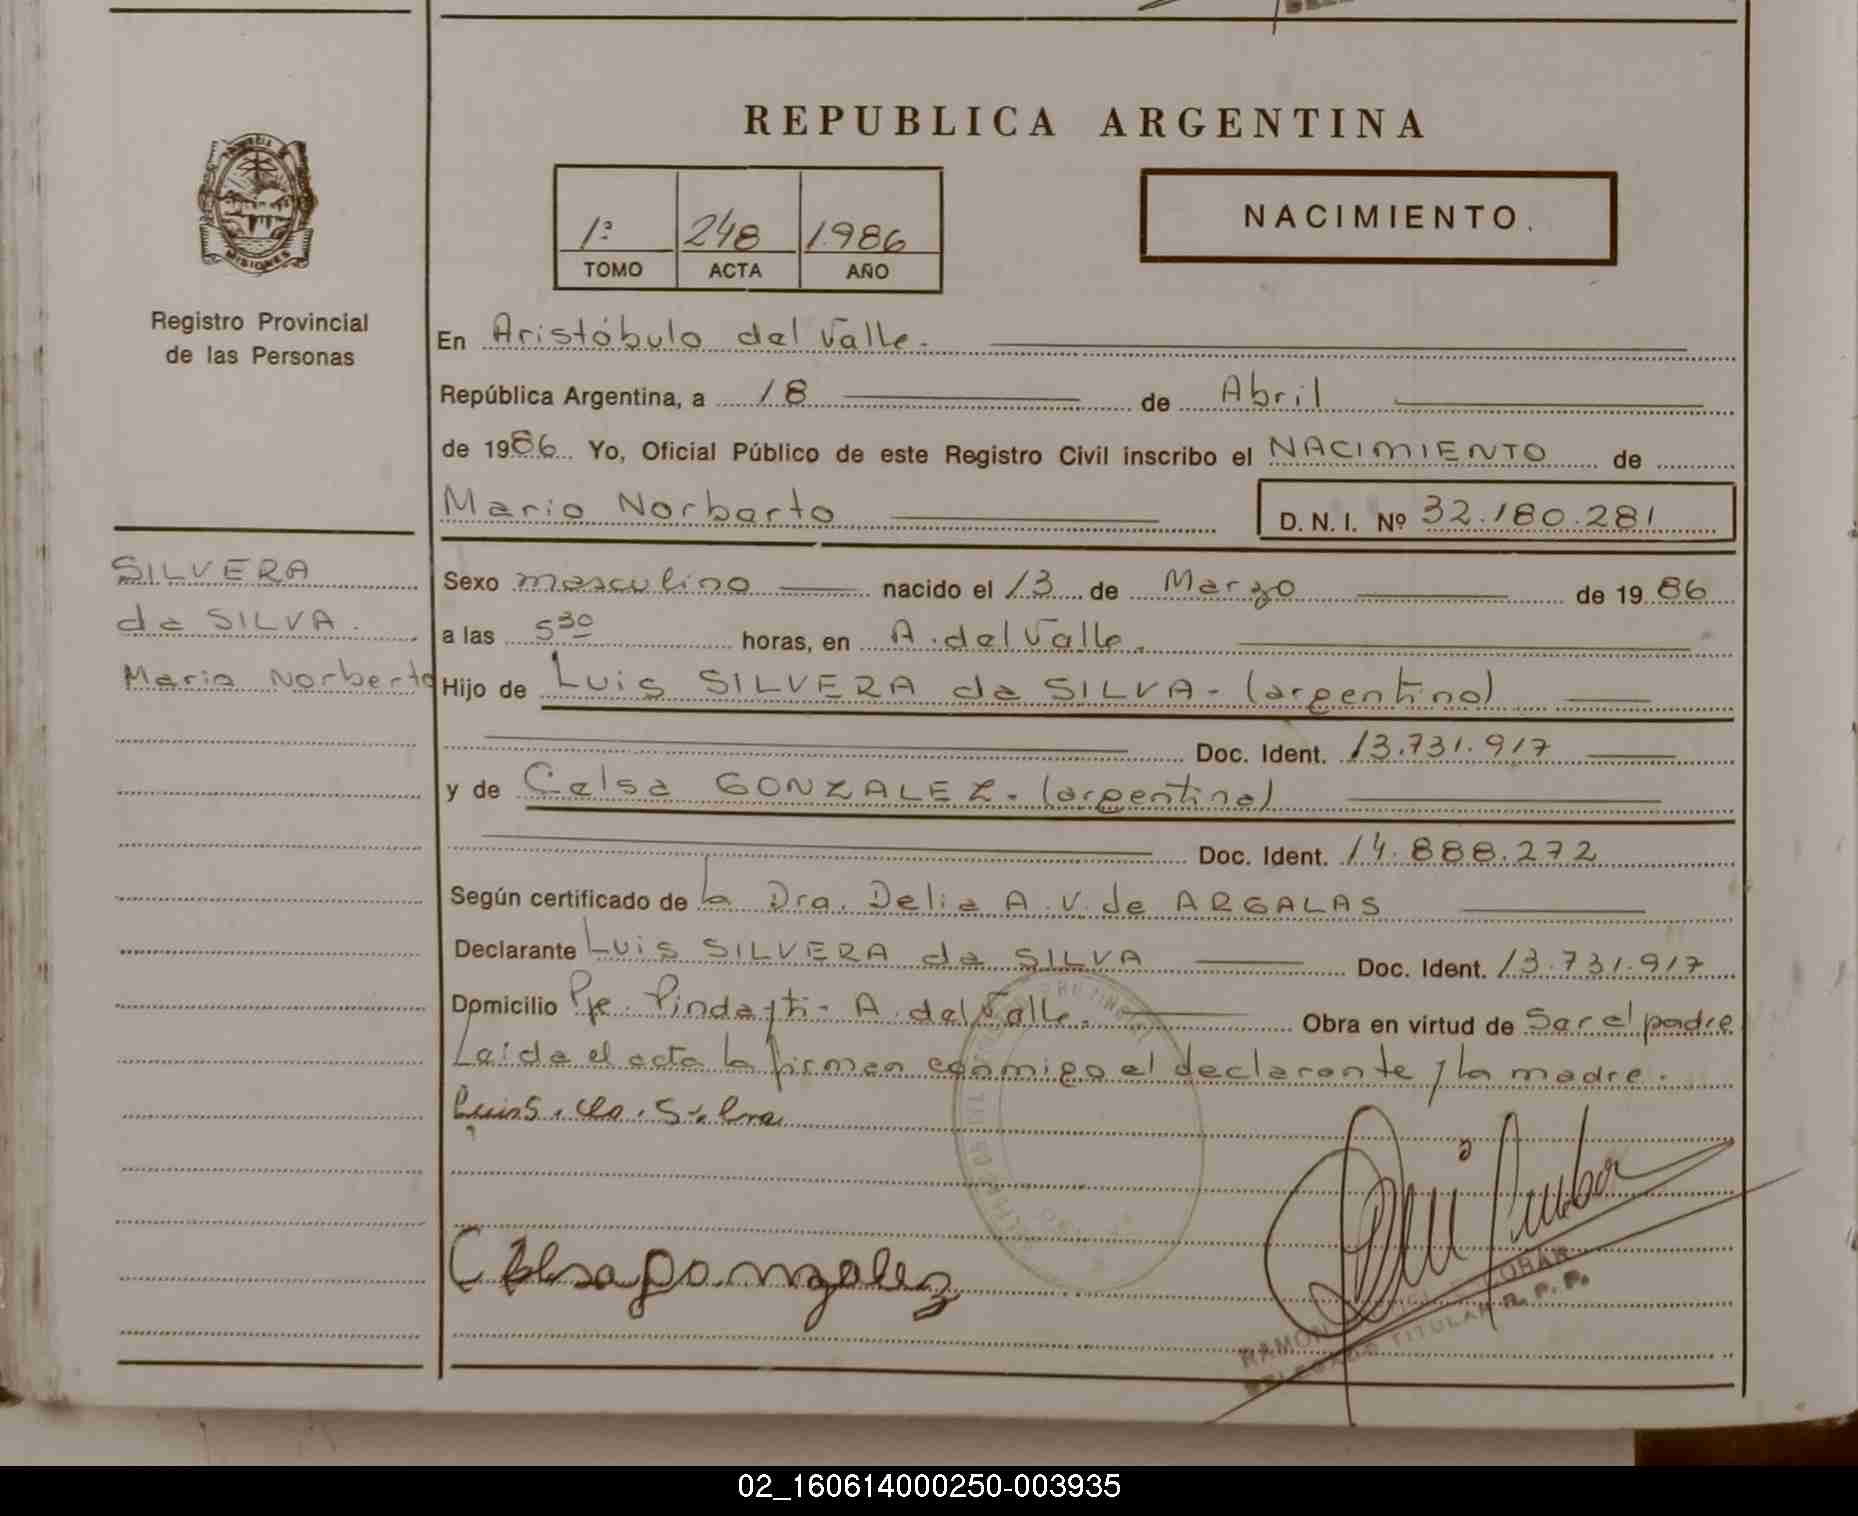 REPUBLICA ARGENTINA
NACIMIENTO.
1º 248 1986
TOMO ACTA AÑO
MISIONES
Registro Provincial
de las Personas
SILVERA
de SILVA.
Mario Norberto
En Aristóbulo del Valle.
República Argentina, a 18 de Abril
de 1986 Yo, Oficial Público de este Registro Civil inscribo el NACIMIENTO de
Mario Norberto D. N. I. Nº 32.180.281
Sexo masculino nacido el 13 de Marzo de 1986
a las 5 30 horas, en A. del Valle.
Hijo de Luis SILVERA de SILVA - (argentino)
Doc. Ident. 13.731.917
y de Celsa GONZALEZ. (argentina)
Doc. Ident. 14.888.272
Según certificado de la Dra. Delia A. V. de ARGALAS
Declarante Luis SILVERA de SILVA Doc. Ident. 13.731.917
Domicilio Pje. Pindayti - A. del Valle. Obra en virtud de Ser el padre
Leída el acta la firman conmigo el declarante y la madre.
Luis S. de Silva
Celsa gonzalez
RAMON
TITULAR R. P. P.
02_160614000250-003935